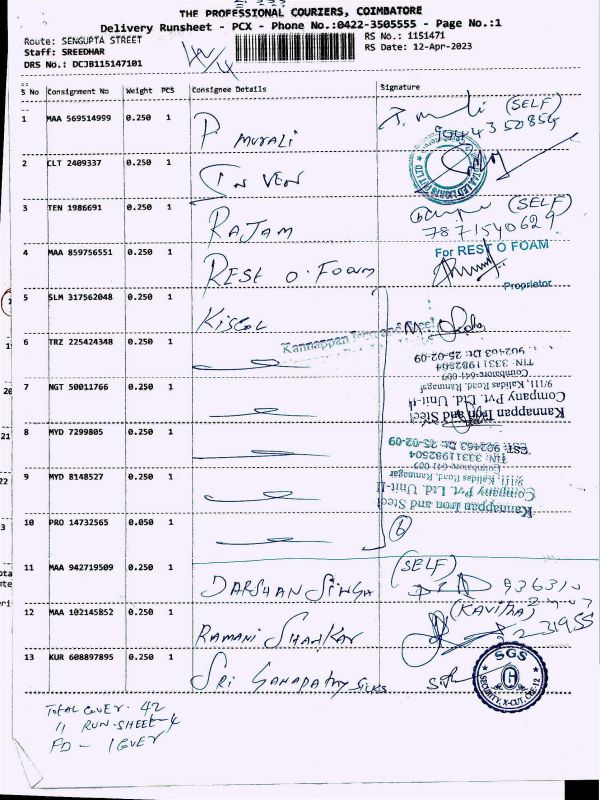 THE PROFESSIONAL COURIERS, COIMBATORE
Delivery Runsheet - PCX - Phone No.:0422-3505555 - Page No.:1
Route: SENGUPTA STREET
RS No.: 1151471
Staff: SREEDHAR
RS Date: 12-Apr-2023
DRS No.: DCJB115147101
S No Consignment No Weight PCS Consignee Details Signature
1 MAA 569514999 0.250 1 P Murali (SELF)
2 CLT 2409337 0.250 1
3 TEN 1986691 0.250 1 RAJAM (SELF)
7871540629
4 MAA 859756551 0.250 1 REST O. FOAM For REST O FOAM
Proprietor
5 SLM 317562048 0.250 1
6 TRZ 225424348 0.250 1
Kannappan Iron and Steel
Company Pvt. Ltd. Unit-II
9/111, Kalidas Road, Ramnagar
Coimbatore-641 009
TIN: 33311982504
7 NGT 50011766 0.250 1
8 MYD 7299805 0.250 1
Kannappan Iron and Steel
Company Pvt. Ltd. Unit-II
9/111, Kalidas Road, Ramnagar
Coimbatore-641 009
TIN: 33311982504
CST: 902463 Dt: 25-02-09
9 MYD 8148527 0.250 1
10 PRO 14732565 0.050 1 6
11 MAA 942719509 0.250 1 DARSHAN SINGH (SELF)
12 MAA 102145852 0.250 1 RAMANI SHANKAR (KAVITHA)
13 KUR 608897895 0.250 1 Sri Ganapathy Silks
SGS
SECURITY, X-CUT, CBE-12
TOTAL COVER - 42
11 RUN-SHEET-4
FD - 1 COVER